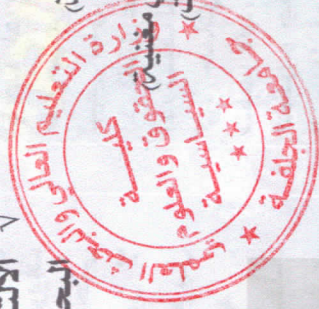 وزارة التعليم العالي والبحث العلمي
جامعة الجلفة
كلية
الحقوق والعلوم
السياسية